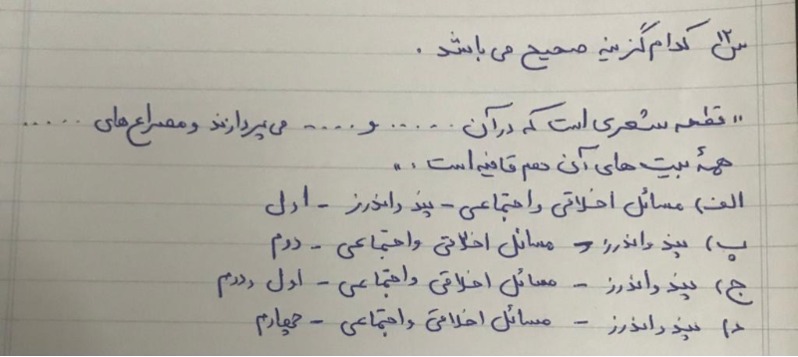 س۱۲ کدام گزینه صحیح می باشد .
" قطعه شعری است که در آن ...... و ..... می پردازند و مصراع های .....
همهٔ بیت های آن هم قافیه است . "
الف) مسائل اخلاقی واجتماعی - پند واندرز - اول
ب) پند واندرز - مسائل اخلاقی واجتماعی - دوم
ج) پند واندرز - مسائل اخلاقی واجتماعی - اول ودوم
د) پند واندرز - مسائل اخلاقی واجتماعی - چهارم